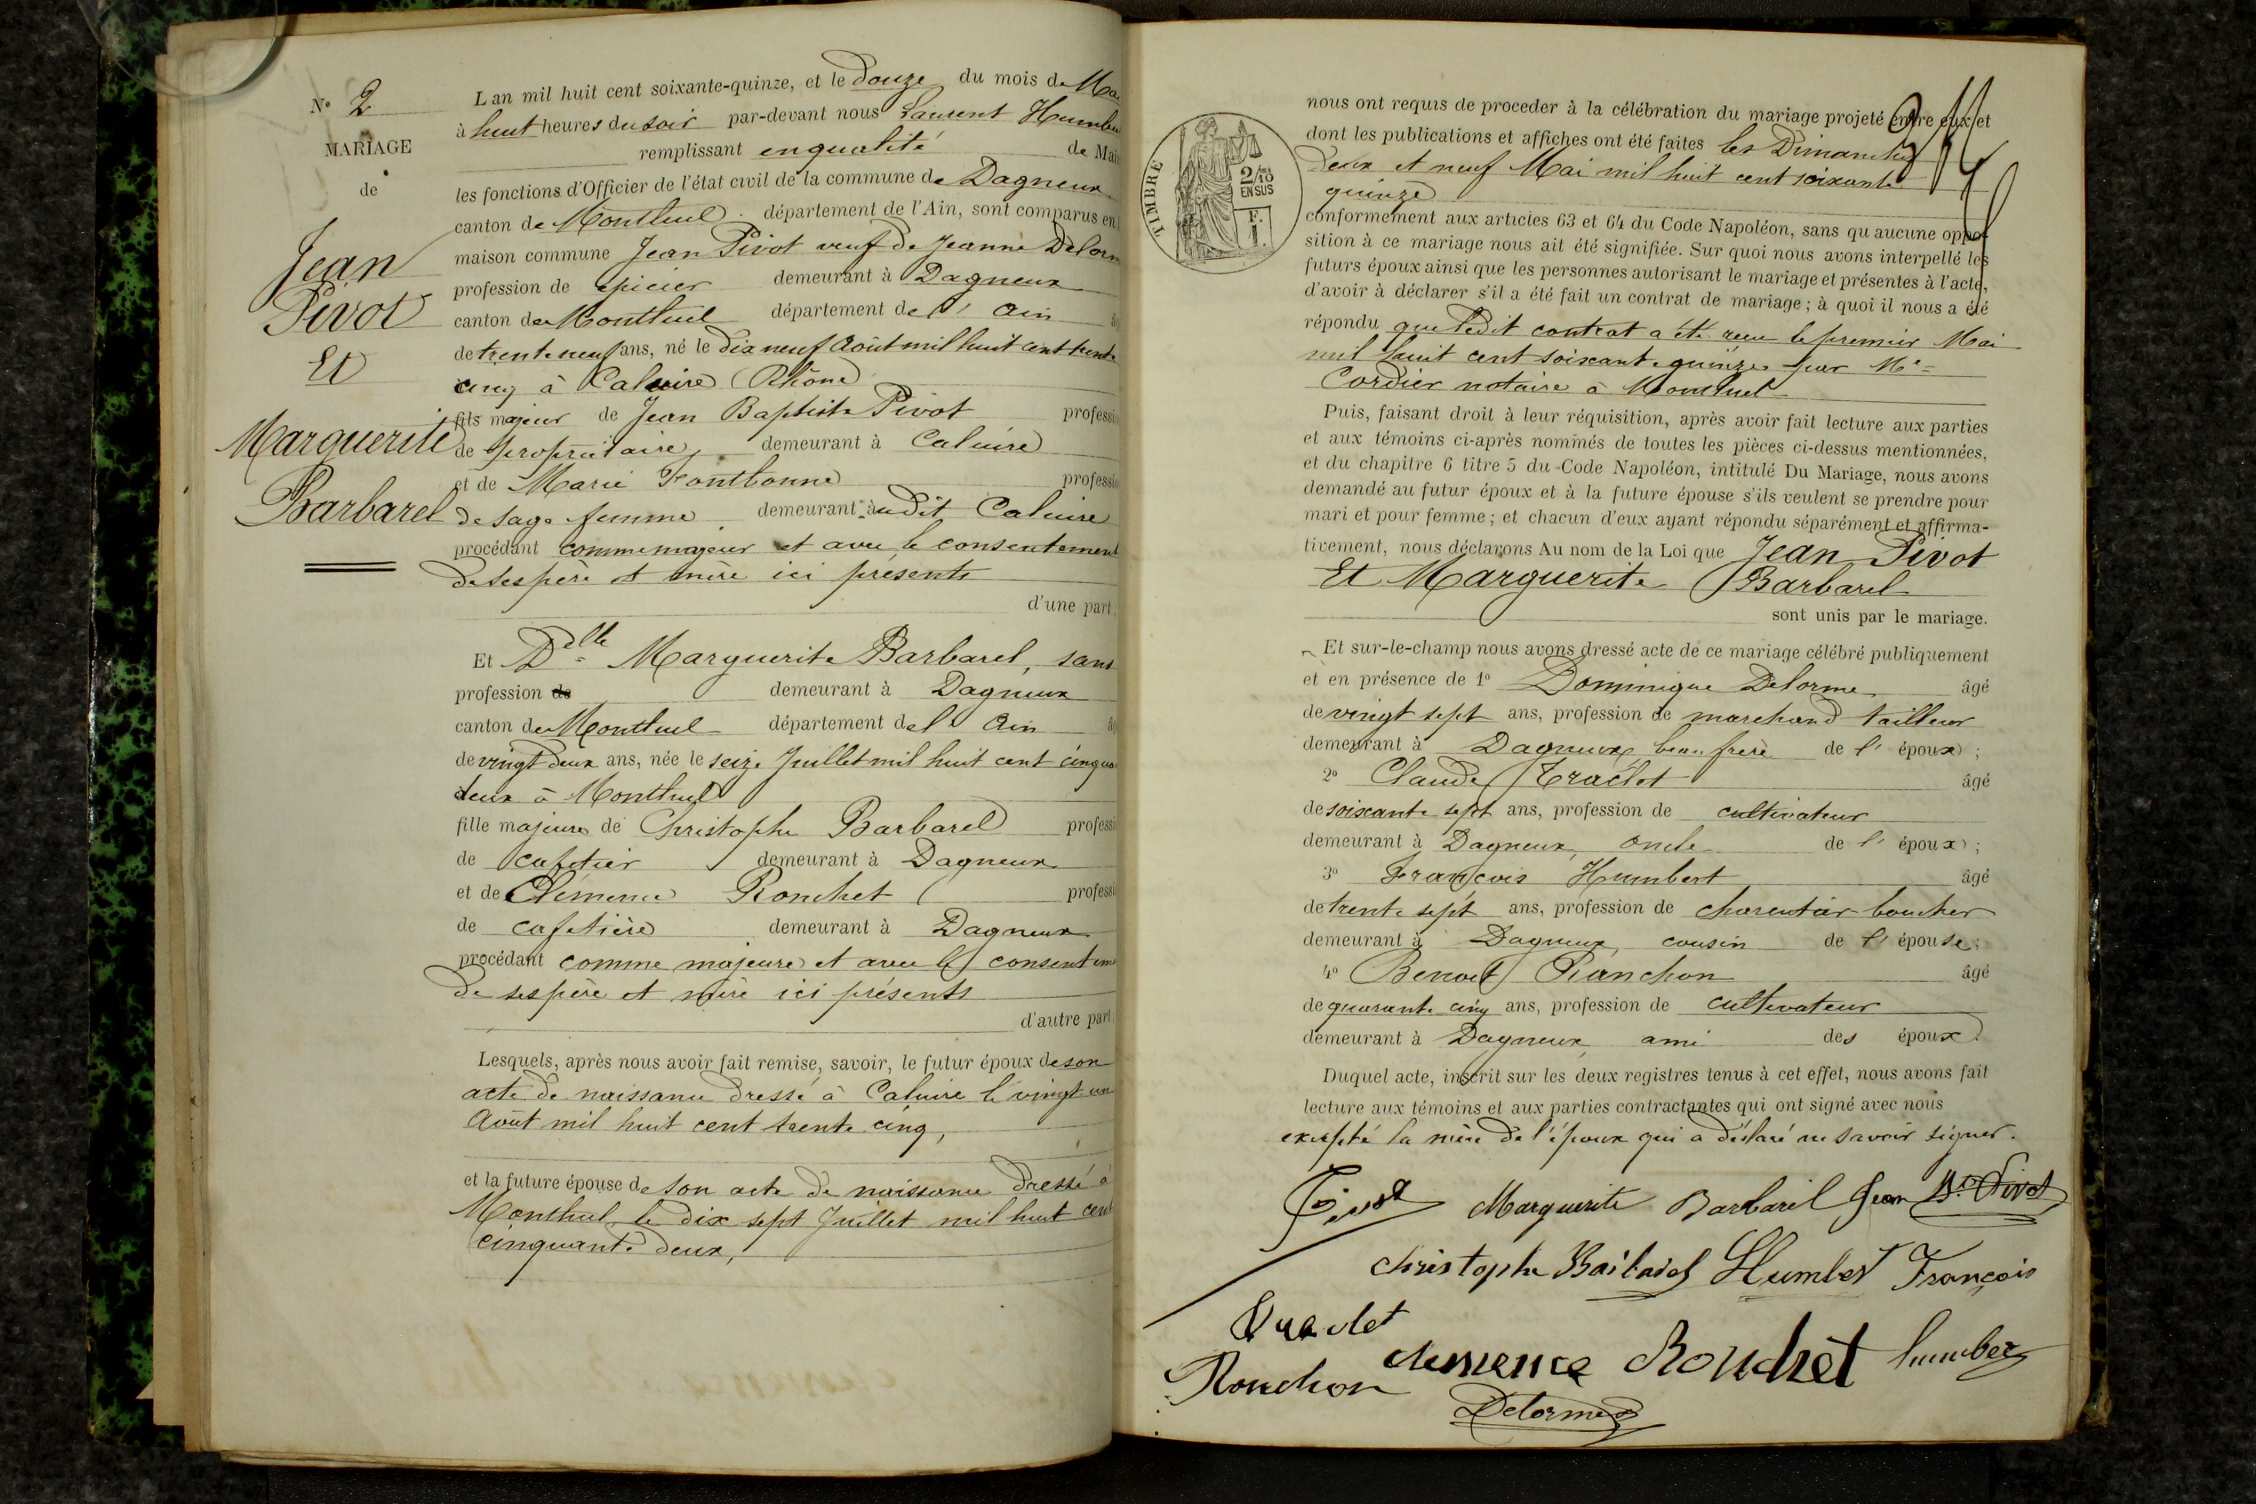 N° 2
MARIAGE
de
Jean
Pivot
Et
Marguerite
Barbarel
Lan mil huit cent soixante-quinze, et le douze du mois de Mai
à huit heures du soir par-devant nous Laurent Humbe
remplissant en qualité de Mai
les fonctions d'Officier de l'état civil de la commune de Dagneux
canton de Montluel département de l'Ain, sont comparus en
maison commune Jean Pivot veuf de Jeanne Delorm
profession de épicier demeurant à Dagneux
canton de Montluel département de l'Ain âg
de trente neuf ans, né le dix neuf Août mil huit cent trente
cinq à Caluire (Rhône)
fils majeur de Jean Baptiste Pivot professio
de propriétaire demeurant à Caluire
et de Marie Fontbonne professio
de sage femme demeurant audit Caluire
procédant comme majeur et avec le consentement
de ses père et mère ici présents
d'une part.
Et Dlle Marguerite Barbarel, sans
profession de demeurant à Dagneux
canton de Montluel département de l'Ain âg
de vingt deux ans, née le seize Juillet mil huit cent cinqua
deux à Montluel
fille majeure de Christophe Barbarel professi
de cafetier demeurant à Dagneux
et de Clémence Ronchet professi
de cafetière demeurant à Dagneux
procédant comme majeure et avec le consenteme
de ses père et mère ici présents
d'autre part.
Lesquels, après nous avoir fait remise, savoir, le futur époux de son
acte de naissance dressé à Caluire le vingt un
Août mil huit cent trente cinq,
et la future épouse de son acte de naissance dressé à
Montluel le dix sept Juillet mil huit cent
cinquante deux,
TIMBRE
2/10
EN SUS
F.
1.
nous ont requis de proceder à la célébration du mariage projeté entre eux et
dont les publications et affiches ont été faites les Dimanches
deux et neuf Mai mil huit cent soixante
quinze
conformement aux articles 63 et 64 du Code Napoléon, sans qu aucune oppo-
sition à ce mariage nous ait été signifiée. Sur quoi nous avons interpellé les
futurs époux ainsi que les personnes autorisant le mariage et présentes à l'acte,
d'avoir à déclarer s'il a été fait un contrat de mariage ; à quoi il nous a été
répondu que ledit contrat a été recu le premier Mai
mil huit cent soixante quinze par Me
Cordier notaire à Montluel
Puis, faisant droit à leur réquisition, après avoir fait lecture aux parties
et aux témoins ci-après nommés de toutes les pièces ci-dessus mentionnées,
et du chapitre 6 titre 5 du Code Napoléon, intitulé Du Mariage, nous avons
demandé au futur époux et à la future épouse s'ils veulent se prendre pour
mari et pour femme ; et chacun d'eux ayant répondu séparément et affirma-
tivement, nous déclarons Au nom de la Loi que Jean Pivot
Et Marguerite Barbarel
sont unis par le mariage.
Et sur-le-champ nous avons dressé acte de ce mariage célébré publiquement
et en présence de 1° Dominique Delorme âgé
de vingt sept ans, profession de marchand tailleur
demeurant à Dagneux beau frère de l'époux ;
2° Claude Traclet âgé
de soixante sept ans, profession de cultivateur
demeurant à Dagneux, oncle de l'époux ;
3° François Humbert âgé
de trente sept ans, profession de charcutier boucher
demeurant à Dagneux, cousin de l'épouse ;
4° Benoit Ranchon âgé
de quarante cinq ans, profession de cultivateur
demeurant à Dagneux, ami des époux.
Duquel acte, inscrit sur les deux registres tenus à cet effet, nous avons fait
lecture aux témoins et aux parties contractantes qui ont signé avec nous
excepté la mère de l'époux qui a déclaré ne savoir signer.
Pivot Marguerite Barbaril Jean Bte Pivot
Christophe Barbarel Humbert François
Traclet
Clemence Ronchet humbert
Ronchon
Delorme